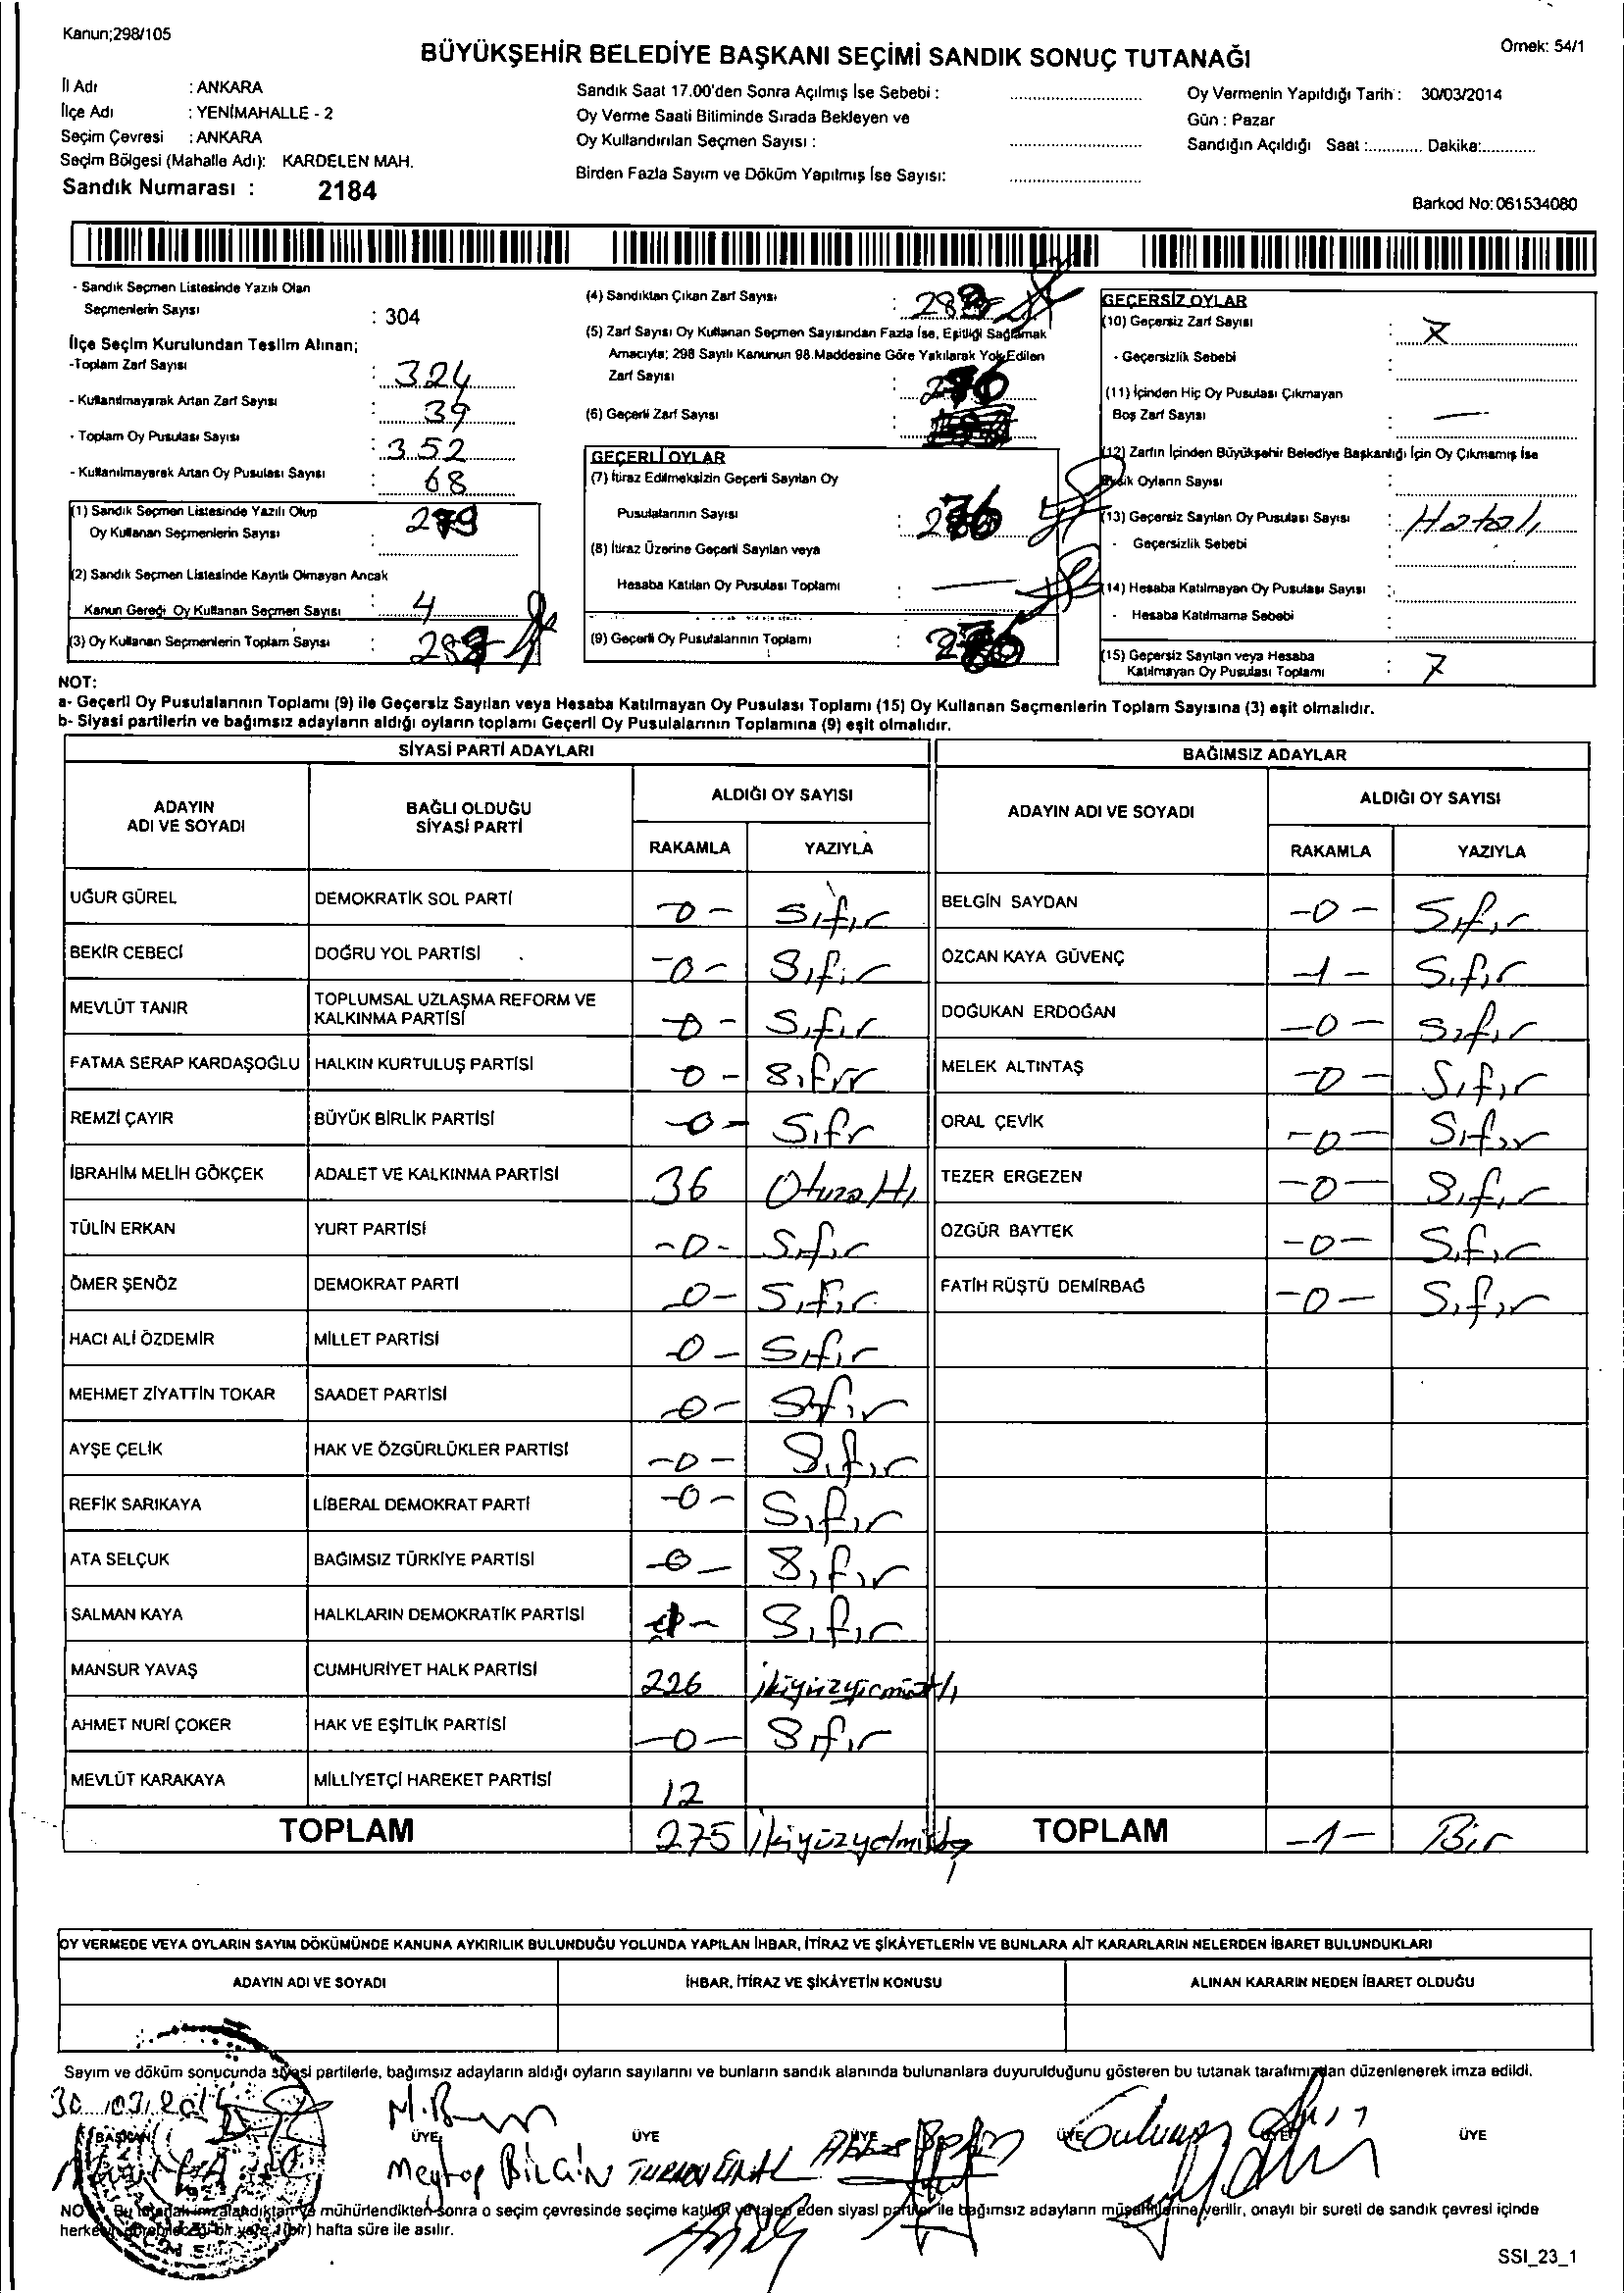 Kanun;298/105
Örnek: 54/1
BÜYÜKŞEHİR BELEDİYE BAŞKANI SEÇİMİ SANDIK SONUÇ TUTANAĞI
İl Adı : ANKARA
İlçe Adı : YENİMAHALLE - 2
Seçim Çevresi : ANKARA
Seçim Bölgesi (Mahalle Adı): KARDELEN MAH.
Sandık Numarası : 2184
Sandık Saat 17.00'den Sonra Açılmış İse Sebebi :
Oy Verme Saati Bitiminde Sırada Bekleyen ve
Oy Kullandırılan Seçmen Sayısı :
Birden Fazla Sayım ve Döküm Yapılmış İse Sayısı:
Oy Vermenin Yapıldığı Tarih : 30/03/2014
Gün : Pazar
Sandığın Açıldığı Saat :............ Dakika:............
Barkod No:061534080
- Sandık Seçmen Listesinde Yazılı Olan
Seçmenlerin Sayısı : 304
İlçe Seçim Kurulundan Teslim Alınan;
-Toplam Zarf Sayısı : 324
- Kullanılmayarak Artan Zarf Sayısı : 39
- Toplam Oy Pusulası Sayısı : 352
- Kullanılmayarak Artan Oy Pusulası Sayısı : 68
(1) Sandık Seçmen Listesinde Yazılı Olup
Oy Kullanan Seçmenlerin Sayısı : 279
(2) Sandık Seçmen Listesinde Kayıtlı Olmayan Ancak
Kanun Gereği Oy Kullanan Seçmen Sayısı : 4
(3) Oy Kullanan Seçmenlerin Toplam Sayısı :
(4) Sandıktan Çıkan Zarf Sayısı :
(5) Zarf Sayısı Oy Kullanan Seçmen Sayısından Fazla İse, Eşitliği Sağlamak
Amacıyla; 298 Sayılı Kanunun 98.Maddesine Göre Yakılarak Yok Edilen
Zarf Sayısı :
(6) Geçerli Zarf Sayısı :
GEÇERLİ OYLAR
(7) İtiraz Edilmeksizin Geçerli Sayılan Oy
Pusulalarının Sayısı : 276
(8) İtiraz Üzerine Geçerli Sayılan veya
Hesaba Katılan Oy Pusulası Toplamı : —
(9) Geçerli Oy Pusulalarının Toplamı :
GEÇERSİZ OYLAR
(10) Geçersiz Zarf Sayısı : 7
- Geçersizlik Sebebi :
(11) İçinden Hiç Oy Pusulası Çıkmayan
Boş Zarf Sayısı : —
(12) Zarfın İçinden Büyükşehir Belediye Başkanlığı İçin Oy Çıkmamış İse
Eksik Oyların Sayısı :
(13) Geçersiz Sayılan Oy Pusulası Sayısı : Hatalı
- Geçersizlik Sebebi :
(14) Hesaba Katılmayan Oy Pusulası Sayısı :
- Hesaba Katılmama Sebebi :
(15) Geçersiz Sayılan veya Hesaba
Katılmayan Oy Pusulası Toplamı : 7
NOT:
a- Geçerli Oy Pusulalarının Toplamı (9) ile Geçersiz Sayılan veya Hesaba Katılmayan Oy Pusulası Toplamı (15) Oy Kullanan Seçmenlerin Toplam Sayısına (3) eşit olmalıdır.
b- Siyasi partilerin ve bağımsız adayların aldığı oyların toplamı Geçerli Oy Pusulalarının Toplamına (9) eşit olmalıdır.
SİYASİ PARTİ ADAYLARI
ADAYIN ADI VE SOYADI
BAĞLI OLDUĞU SİYASİ PARTİ
ALDIĞI OY SAYISI
RAKAMLA YAZIYLA
UĞUR GÜREL DEMOKRATİK SOL PARTİ -0- Sıfır
BEKİR CEBECİ DOĞRU YOL PARTİSİ -0- Sıfır
MEVLÜT TANIR TOPLUMSAL UZLAŞMA REFORM VE KALKINMA PARTİSİ -0- Sıfır
FATMA SERAP KARDAŞOĞLU HALKIN KURTULUŞ PARTİSİ -0- Sıfır
REMZİ ÇAYIR BÜYÜK BİRLİK PARTİSİ -0- Sıfr
İBRAHİM MELİH GÖKÇEK ADALET VE KALKINMA PARTİSİ 36 Otuzaltı
TÜLİN ERKAN YURT PARTİSİ -0- Sıfır
ÖMER ŞENÖZ DEMOKRAT PARTİ -0- Sıfır
HACI ALİ ÖZDEMİR MİLLET PARTİSİ -0- Sıfır
MEHMET ZİYATTİN TOKAR SAADET PARTİSİ -0- Sıfır
AYŞE ÇELİK HAK VE ÖZGÜRLÜKLER PARTİSİ -0- Sıfır
REFİK SARIKAYA LİBERAL DEMOKRAT PARTİ -0- Sıfır
ATA SELÇUK BAĞIMSIZ TÜRKİYE PARTİSİ -0- Sıfır
SALMAN KAYA HALKLARIN DEMOKRATİK PARTİSİ Sıfır
MANSUR YAVAŞ CUMHURİYET HALK PARTİSİ 226 ikiyüzyirmialtı
AHMET NURİ ÇOKER HAK VE EŞİTLİK PARTİSİ -0- Sıfır
MEVLÜT KARAKAYA MİLLİYETÇİ HAREKET PARTİSİ 12
TOPLAM 275
BAĞIMSIZ ADAYLAR
ADAYIN ADI VE SOYADI
ALDIĞI OY SAYISI
RAKAMLA YAZIYLA
BELGİN SAYDAN -0- Sıfır
ÖZCAN KAYA GÜVENÇ -1- Sıfır
DOĞUKAN ERDOĞAN -0- Sıfır
MELEK ALTINTAŞ -0- Sıfır
ORAL ÇEVİK -0- Sıfır
TEZER ERGEZEN -0- Sıfır
ÖZGÜR BAYTEK -0- Sıfır
FATİH RÜŞTÜ DEMİRBAĞ -0- Sıfır
TOPLAM -1- Bir
OY VERMEDE VEYA OYLARIN SAYIM DÖKÜMÜNDE KANUNA AYKIRILIK BULUNDUĞU YOLUNDA YAPILAN İHBAR, İTİRAZ VE ŞİKÂYETLERİN VE BUNLARA AİT KARARLARIN NELERDEN İBARET BULUNDUKLARI
ADAYIN ADI VE SOYADI İHBAR, İTİRAZ VE ŞİKÂYETİN KONUSU ALINAN KARARIN NEDEN İBARET OLDUĞU
Sayım ve döküm sonucunda siyasi partilerle, bağımsız adayların aldığı oyların sayılarını ve bunların sandık alanında bulunanlara duyurulduğunu gösteren bu tutanak tarafımızdan düzenlenerek imza edildi.
30.03.2014
BAŞKAN ÜYE ÜYE ÜYE ÜYE ÜYE ÜYE
BİLGİN
NOT: Bu tutanak imzalandıktan ve mühürlendikten sonra o seçim çevresinde seçime katılan ve talep eden siyasi partiler ile bağımsız adayların müşahitlerine verilir, onaylı bir sureti de sandık çevresi içinde
herkesin görebileceği bir yere 1 (bir) hafta süre ile asılır.
SSI_23_1